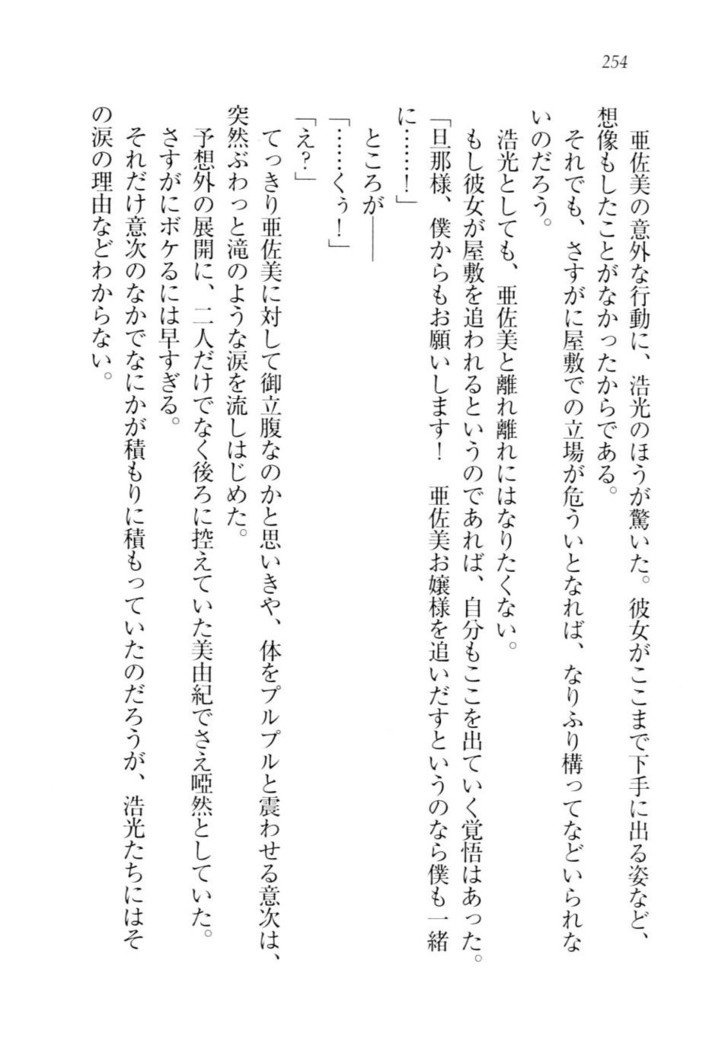 254
亜佐美の意外な行動に、浩光のほうが驚いた。彼女がここまで下手に出る姿など、
想像もしたことがなかったからである。
それでも、さすがに屋敷での立場が危ういとなれば、なりふり構ってなどいられな
いのだろう。
浩光としても、亜佐美と離れ離れにはなりたくない。
もし彼女が屋敷を追われるというのであれば、自分もここを出ていく覚悟はあった。
「旦那様、僕からもお願いします！　亜佐美お嬢様を追いだすというのなら僕も一緒
に……！」
ところが――
「……くぅ！」
「え？」
てっきり亜佐美に対して御立腹なのかと思いきや、体をプルプルと震わせる意次は、
突然ぶわっと滝のような涙を流しはじめた。
予想外の展開に、二人だけでなく後ろに控えていた美由紀でさえ啞然としていた。
さすがにボケるには早すぎる。
それだけ意次のなかでなにかが積もりに積もっていたのだろうが、浩光たちにはそ
の涙の理由などわからない。